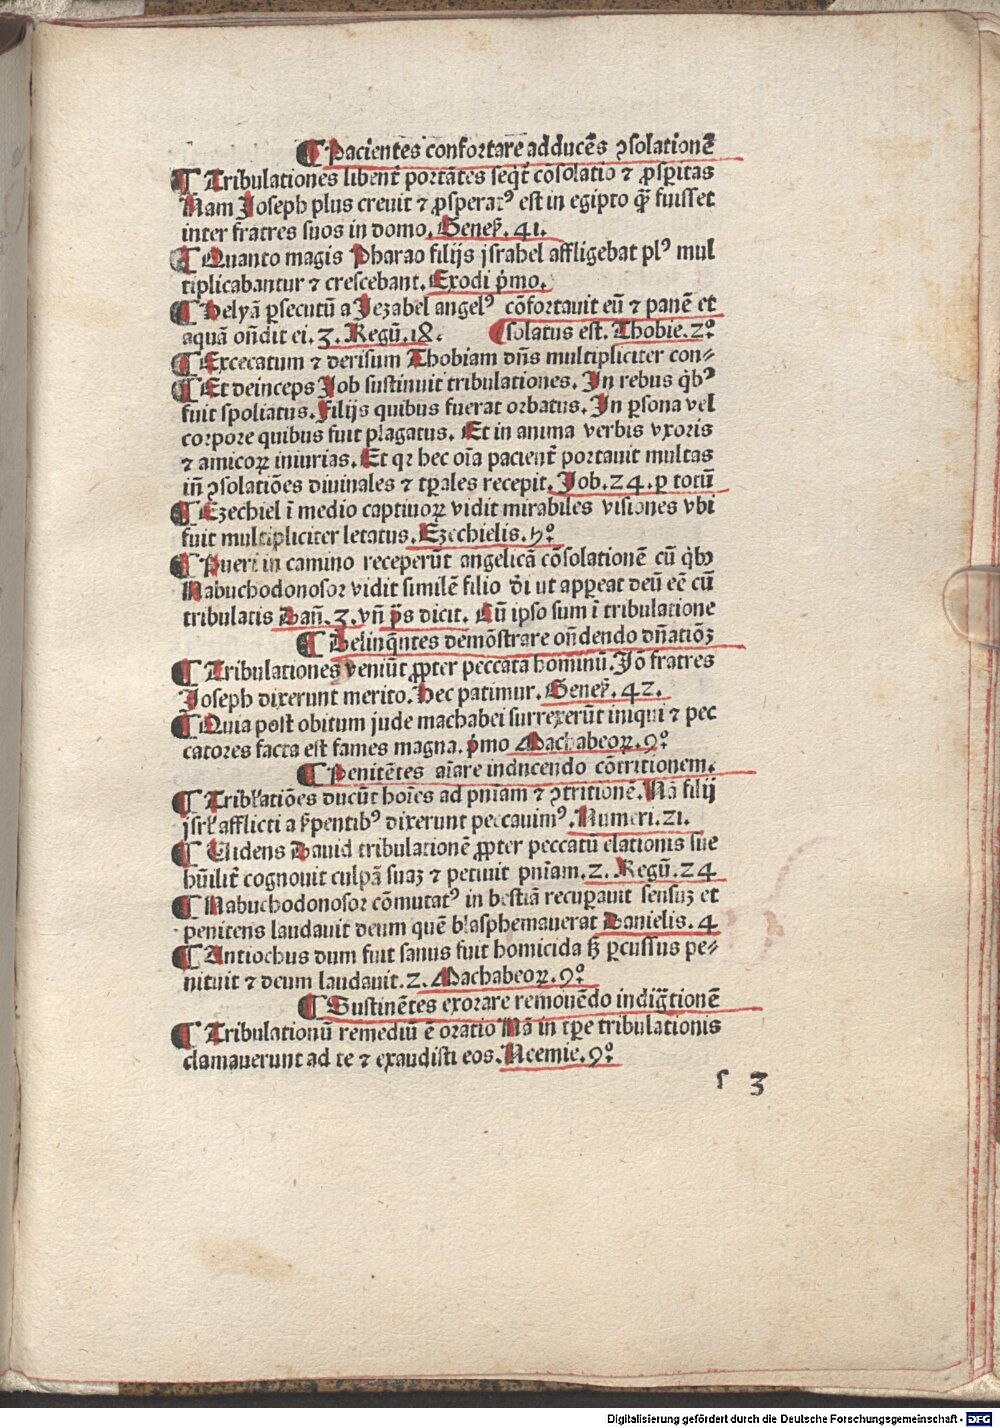 ¶ Pacientes confortare adducẽs ꝯsolationẽ
¶ Tribulationes libent̃ portãtes seqt̃ cõsolatio ⁊ ꝓsꝑitas
Nam Joseph plus creuit ⁊ ꝓsperatꝰ est in egipto q̃ȝ fuisset
inter fratres suos in domo. Geneẜ. 41.
¶ Quanto magis Pharao filijs jsrahel affligebat plꝰ mul
tiplicabantur ⁊ crescebant. Exodi p̃mo.
¶ Helyã ꝑsecutũ a Jezabel angelꝰ cõfortauit eũ ⁊ panẽ et
aquã oñdit ei. 3. Regũ. 18. (solatus est. Thobie. 2°
¶ Excecatum ⁊ derisum Thobiam dñs multipliciter con⸗
¶ Et deinceps Job sustinuit tribulationes. In rebus qͥbꝰ
fuit spoliatus. Filijs quibus fuerat orbatus. In ꝑsona vel
corpore quibus fuit plagatus. Et in anima verbis vxoris
⁊ amicoꝝ iniurias. Et qꝛ hec oĩa pacient̃ portauit multas
iñ ꝯsolatiões diuinales ⁊ tꝑales recepit. Job. 24. ꝑ totũ
¶ Ezechiel ĩ medio captiuoꝝ vidit mirabiles visiones vbi
fuit multipliciter letatus. Ezechielis. ꝩ°
¶ Pueri in camino receperũt angelicã cõsolationẽ cũ qͥbꝰ
Nabuchodonosor vidit similẽ filio dĩ ut appeat deũ eẽ cũ
tribulatis Dañ. 3. vñ p̃s dicit. Cũ ipso sum ĩ tribulatione
¶ Delinq̃ntes demõstrare oñdendo dñatiõȝ
¶ Tribulationes veniũt ꝓpter peccata hominũ. Jõ fratres
Joseph dixerunt merito. Hec patimur. Geneẜ. 42.
¶ Quia post obitum jude machabei surrexerũt iniqui ⁊ pec
catores facta est fames magna. p̃mo Machabeoꝝ. 9°
¶ Penitẽtes amare inducendo cõtritionem.
¶ Tribl̃atiões ducũt hoĩes ad pñiam ⁊ ꝯtritionẽ. Nã filij
jsrl̃ afflicti a ẜpentibꝰ dixerunt peccauimꝰ. Numeri. 21.
¶ Uidens Dauid tribulationẽ ꝓpter peccatũ elationis sue
hũilit̃ cognouit culpã suaȝ ⁊ petiuit pñiam. 2. Regũ. 24
¶ Nabuchodonosor cõmutatꝰ in bestiã recuꝑauit sensuȝ et
penitens laudauit deum quẽ blasphemauerat Danielis. 4
¶ Antiochus dum fuit sanus fuit homicida sȝ ꝑcussus pe⸗
nituit ⁊ deum laudauit. 2. Machabeoꝝ. 9°
¶ Sustinẽtes exorare remouẽdo indig̃tionẽ
¶ Tribulationũ remediũ ẽ oratio Nã in tꝑe tribulationis
clamauerunt ad te ⁊ exaudisti eos. Neemie. 9°
ſ 3
Digitalisierung gefördert durch die Deutsche Forschungsgemeinschaft - DFG